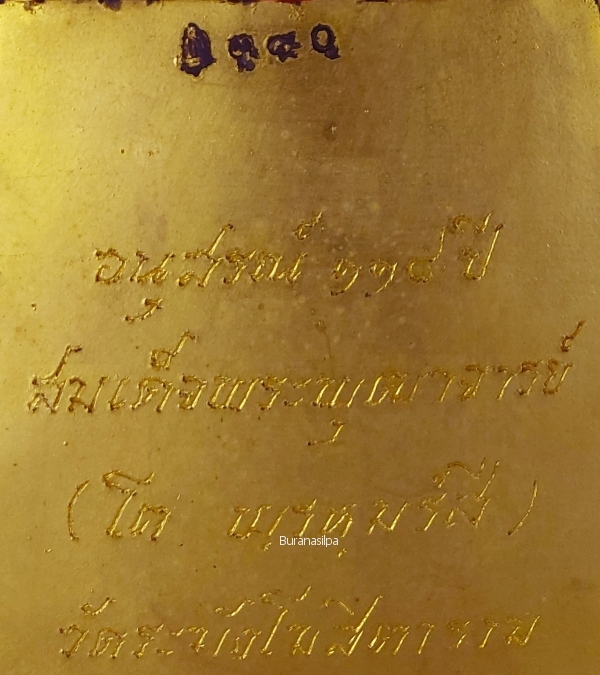 อนุสรณ์ ๑๑๘ ปี
สมเด็จพระพุฒาจารย์
(โต พรฺหฺมรํสี)
Buranasilpa
วัดระฆังโฆสิตาราม